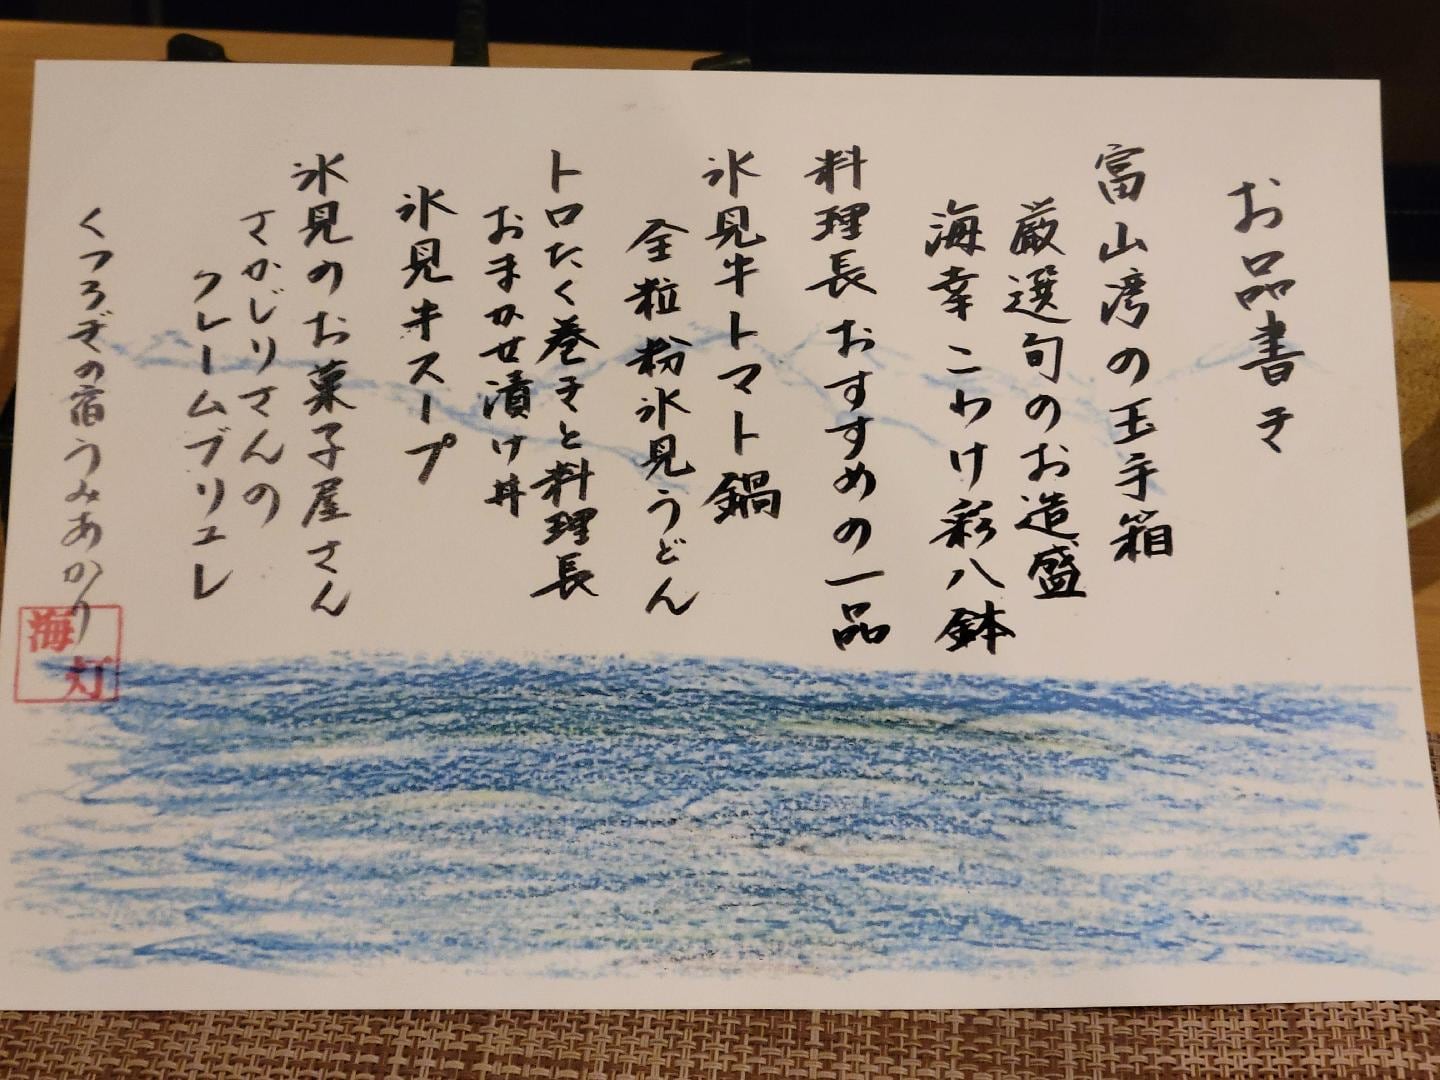 お品書き
富山湾の玉手箱
厳選旬のお造盛
海幸こわけ彩八鉢
料理長おすすめの一品
氷見牛トマト鍋
全粒粉氷見うどん
トロたく巻きと料理長
おまかせ漬け丼
氷見牛スープ
氷見のお菓子屋さん
さかじりさんの
クレームブリュレ
くつろぎの宿うみあかり
海灯